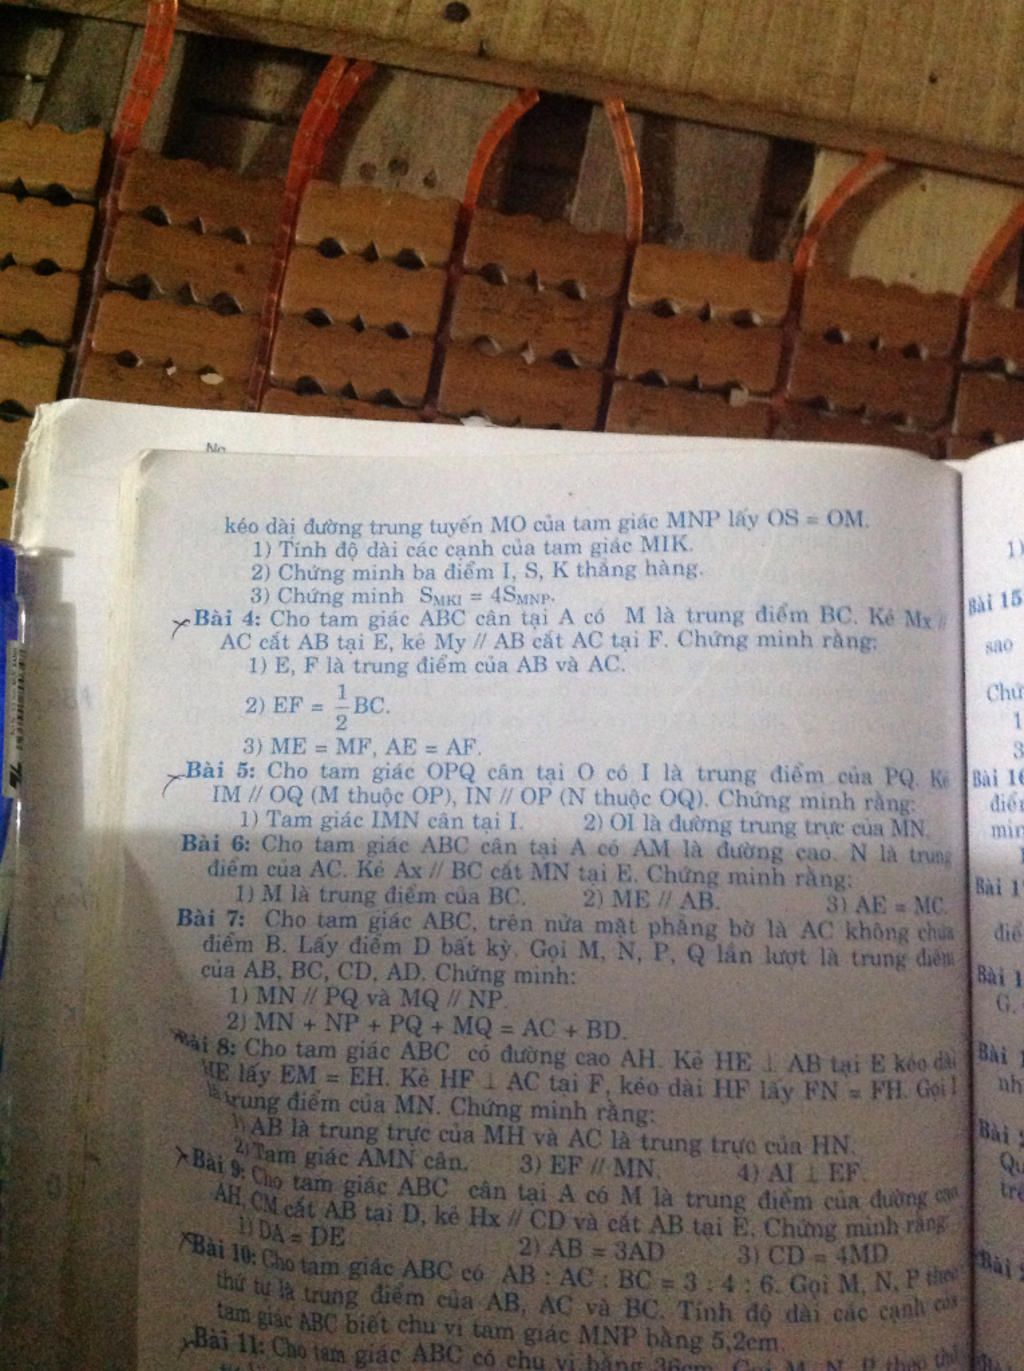 No
kéo dài đường trung tuyến MO của tam giác MNP lấy OS = OM.
1) Tính độ dài các cạnh của tam giác MIK.
2) Chứng minh ba điểm I, S, K thẳng hàng.
3) Chứng minh S_MKI = 4S_MNP.
Bài 4: Cho tam giác ABC cân tại A có M là trung điểm BC. Kẻ Mx //
AC cắt AB tại E, kẻ My // AB cắt AC tại F. Chứng minh rằng:
1) E, F là trung điểm của AB và AC.
2) EF = 1/2 BC.
3) ME = MF, AE = AF.
Bài 5: Cho tam giác OPQ cân tại O có I là trung điểm của PQ. Kẻ
IM // OQ (M thuộc OP), IN // OP (N thuộc OQ). Chứng minh rằng:
1) Tam giác IMN cân tại I. 2) OI là đường trung trực của MN.
Bài 6: Cho tam giác ABC cân tại A có AM là đường cao. N là trung
điểm của AC. Kẻ Ax // BC cắt MN tại E. Chứng minh rằng:
1) M là trung điểm của BC. 2) ME // AB. 3) AE = MC.
Bài 7: Cho tam giác ABC, trên nửa mặt phẳng bờ là AC không chứa
điểm B. Lấy điểm D bất kỳ. Gọi M, N, P, Q lần lượt là trung điểm
của AB, BC, CD, AD. Chứng minh:
1) MN // PQ và MQ // NP.
2) MN + NP + PQ + MQ = AC + BD.
Bài 8: Cho tam giác ABC có đường cao AH. Kẻ HE ⊥ AB tại E kéo dài
HE lấy EM = EH. Kẻ HF ⊥ AC tại F, kéo dài HF lấy FN = FH. Gọi I
là trung điểm của MN. Chứng minh rằng:
1) AB là trung trực của MH và AC là trung trực của HN.
2) Tam giác AMN cân. 3) EF // MN. 4) AI ⊥ EF.
Bài 9: Cho tam giác ABC cân tại A có M là trung điểm của đường cao
AH, CM cắt AB tại D, kẻ Hx // CD và cắt AB tại E. Chứng minh rằng
1) DA = DE 2) AB = 3AD 3) CD = 4MD
Bài 10: Cho tam giác ABC có AB : AC : BC = 3 : 4 : 6. Gọi M, N, P theo
thứ tự là trung điểm của AB, AC và BC. Tính độ dài các cạnh của
tam giác ABC biết chu vi tam giác MNP bằng 5,2cm.
Bài 11: Cho tam giác ABC có chu vi bằng 36cm. Gọi M, N, P theo thứ
1)
Bài 15
sao
Chứ
1
3
Bài 16
điể
min
Bài 1
điể
Bài 1
G.
Bài 1
nh
Bài
Qu
trê
Bài